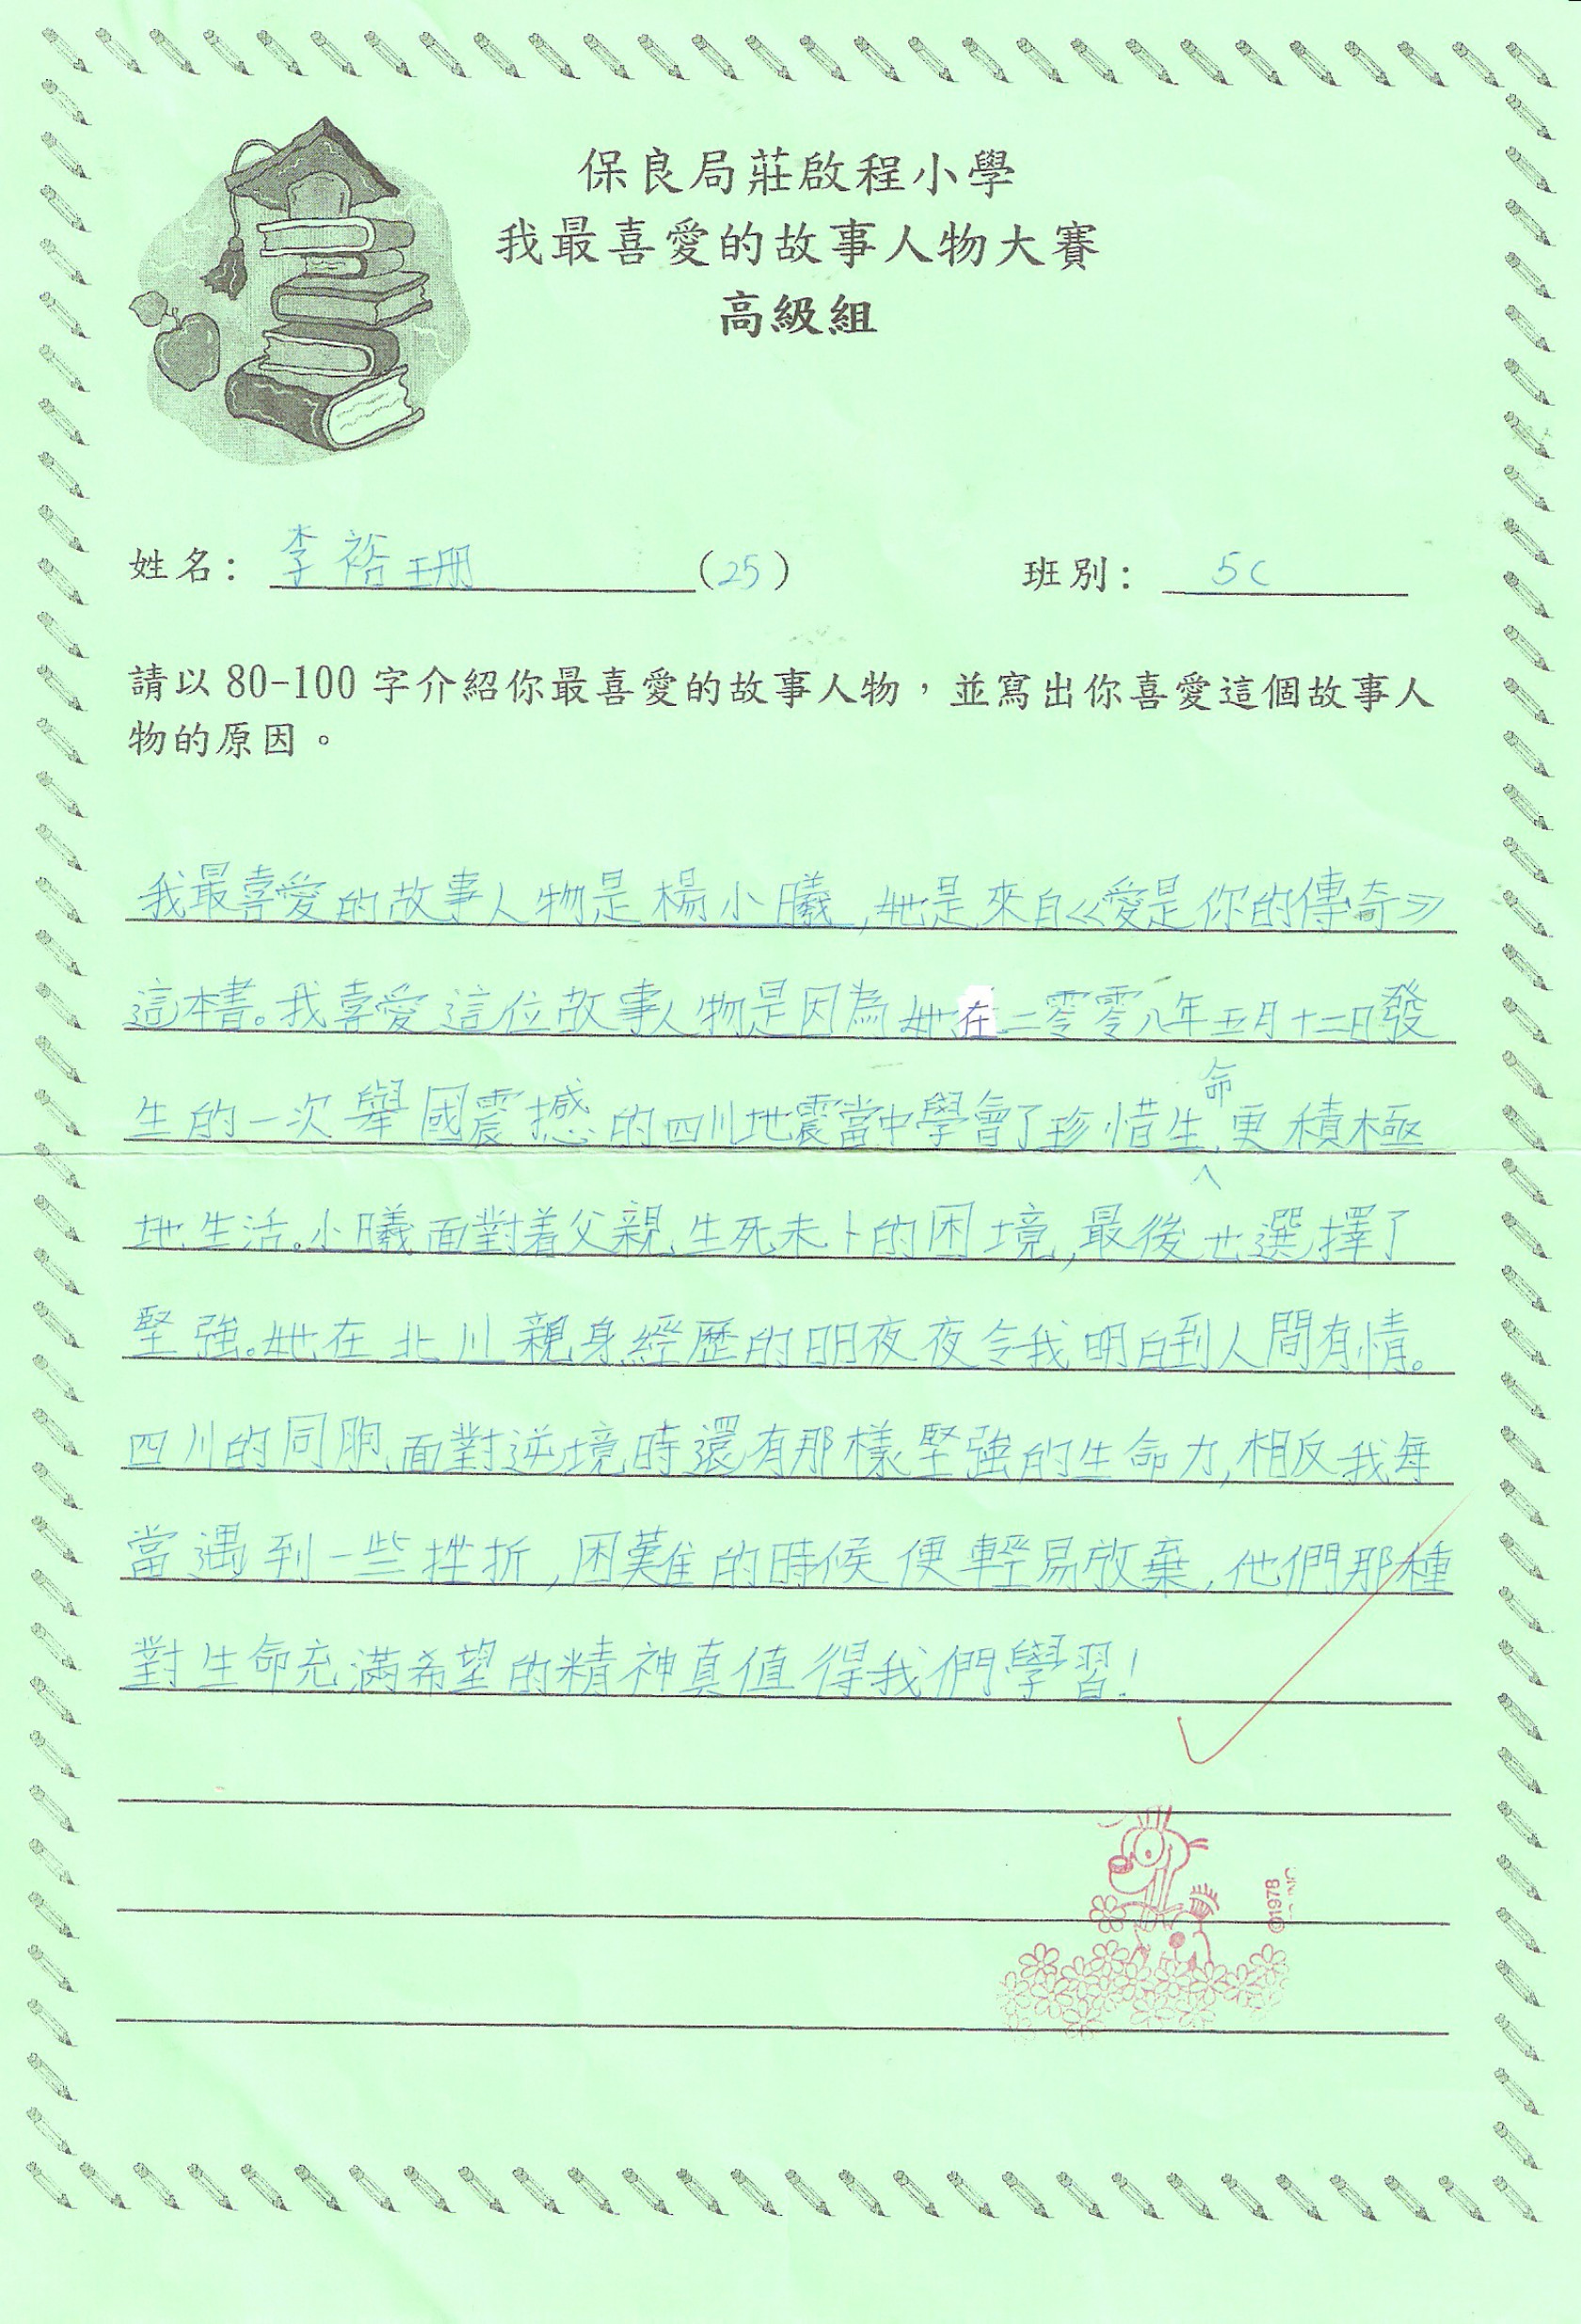 保良局莊啟程小學
我最喜愛的故事人物大賽
高級組
姓名： 李裕珊 (25) 班別： 5C
請以 80-100 字介紹你最喜愛的故事人物，並寫出你喜愛這個故事人
物的原因。
我最喜愛的故事人物是楊小曦,她是來自《愛是你的傳奇》
這本書。我喜愛這位故事人物是因為她在二零零八年五月十二日發
生的一次舉國震撼的四川地震當中學會了珍惜生命,更積極
地生活。小曦面對着父親生死未卜的困境,最後也選擇了
堅強。她在北川親身經歷的明夜夜令我明白到人間有情。
四川的同胞面對逆境時還有那樣堅強的生命力,相反我每
當遇到一些挫折,困難的時候便輕易放棄,他們那種
對生命充滿希望的精神真值得我們學習!
©1978